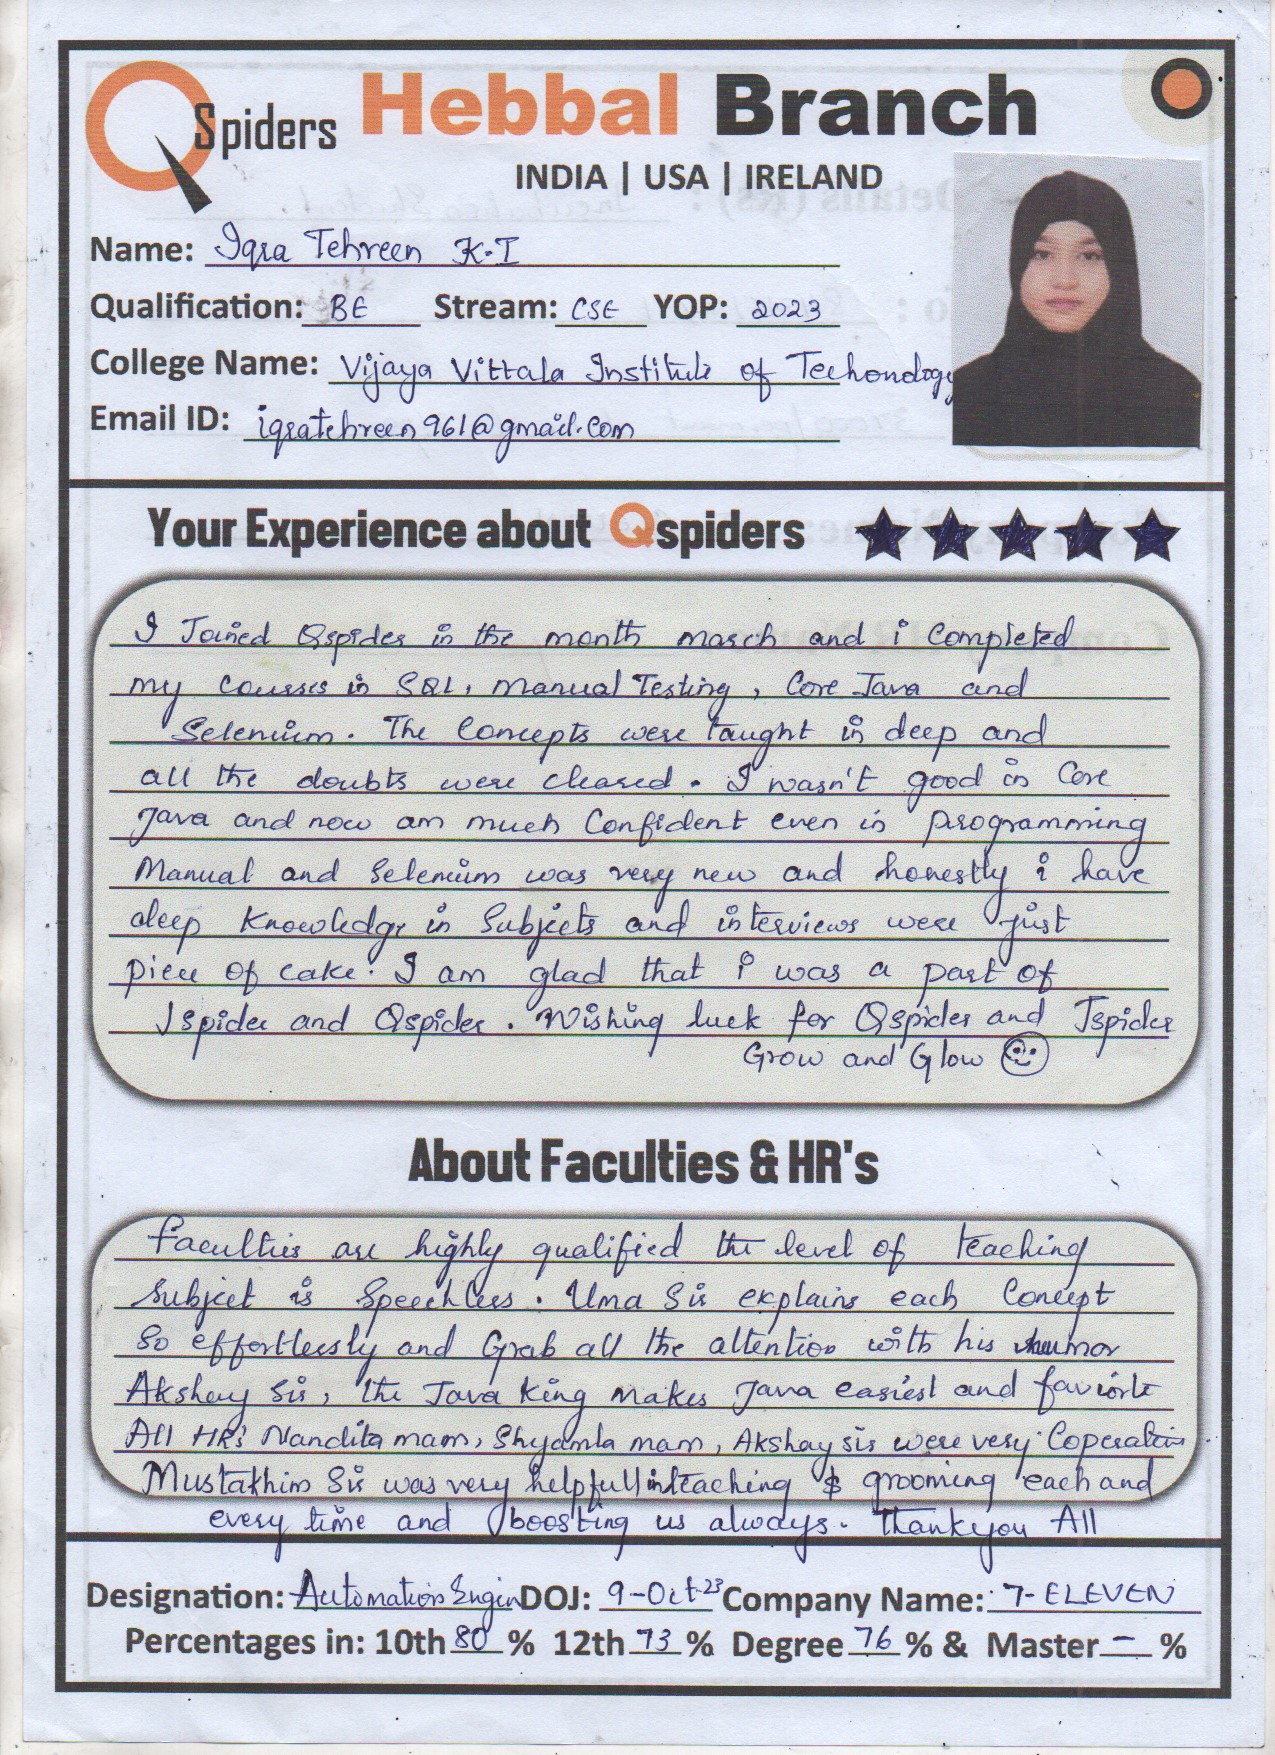 QSpiders Hebbal Branch
INDIA | USA | IRELAND
Name: Iqra Tehreen K.I
Qualification: BE Stream: CSE YOP: 2023
College Name: Vijaya Vittala Institute of Techonology
Email ID: iqratehreen961@gmail.com
Your Experience about Qspiders
I Joined Qspider in the month march and i Completed
my Courses in SQL, Manual Testing, Core Java and
Selenium. The Concepts were taught in deep and
all the doubts were cleared. I wasn't good in Core
Java and now am much Confident even in programming
Manual and Selenium was very new and honestly i have
deep Knowledge in Subjects and interviews were just
piece of cake. I am glad that i was a part of
Jspider and Qspider. Wishing luck for Qspider and Jspider
Grow and Glow
About Faculties & HR's
Faculties are highly qualified the level of teaching
Subject is Speechless. Uma Sir explains each Concept
So effortlessly and Grab all the attention with his humor
Akshay Sir, the Java King makes Java easiest and faviorte
All HR's Nandita mam, Shyamla mam, Akshay sir were very
Mustakhim Sir was very helpfull in teaching & grooming each and
every time and boosting us always. Thankyou All
Designation: Automation Engin DOJ: 9-Oct-23 Company Name: 7-ELEVEN
Percentages in: 10th 80 % 12th 73 % Degree 76 % & Master - %